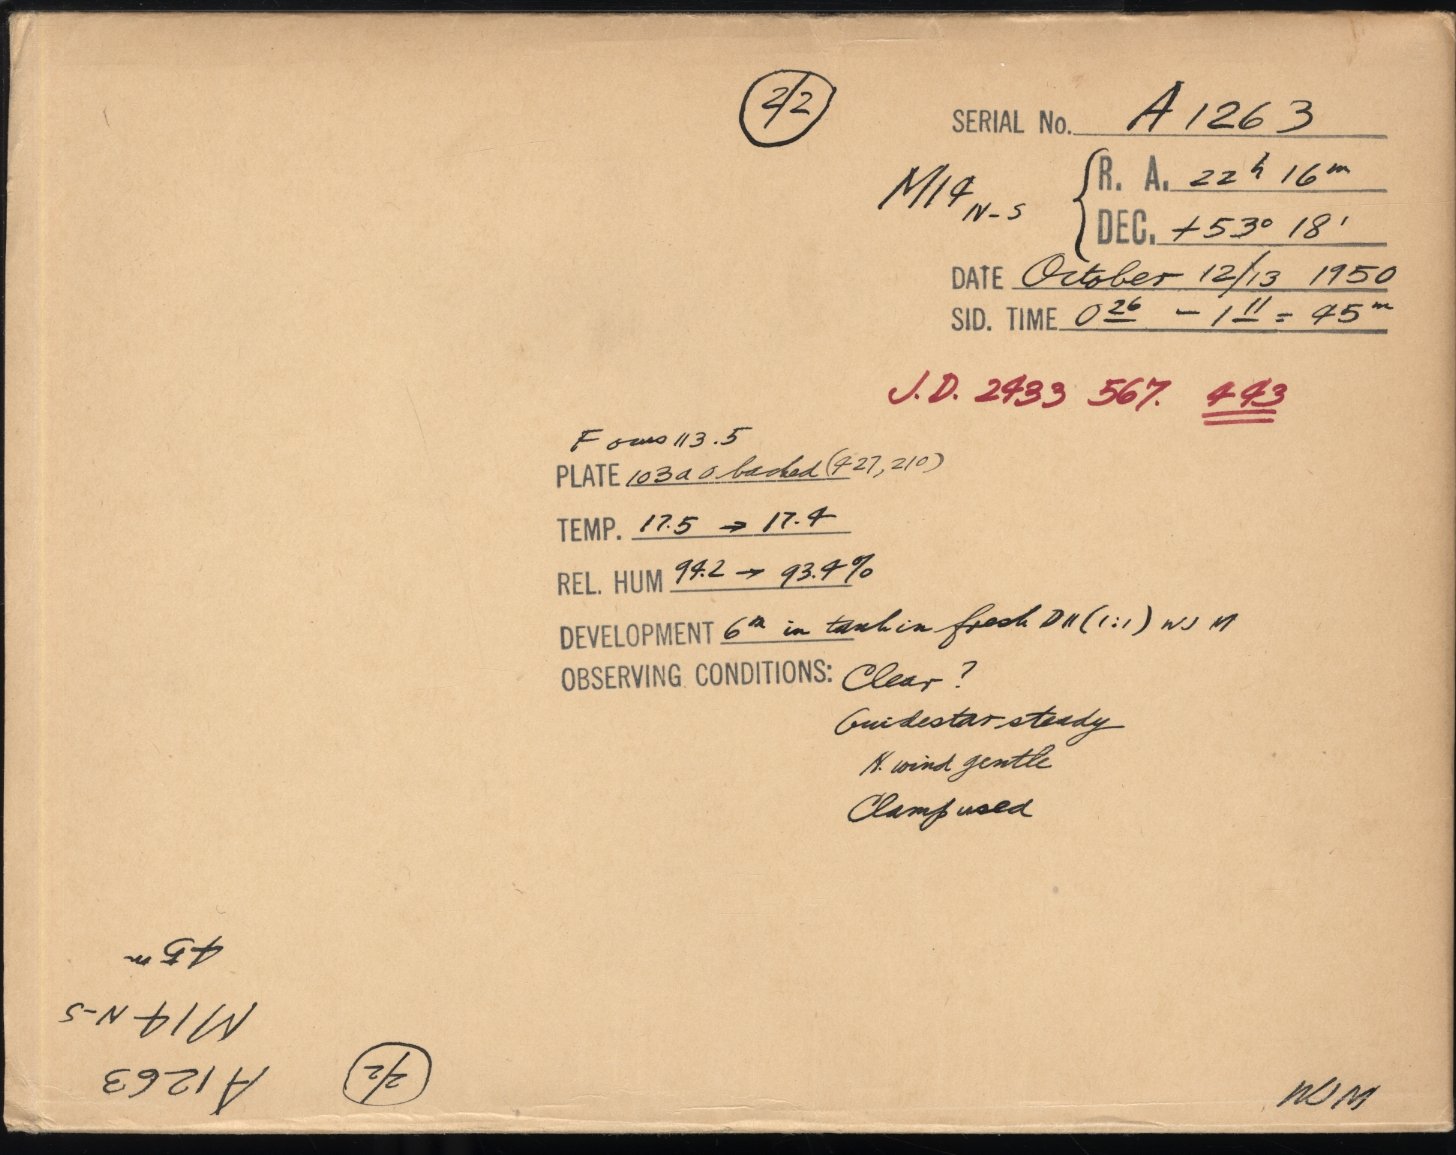 2/2
SERIAL No. A 1263
M14 N-S
R. A. 22h 16m
DEC. +53° 18'
DATE October 12/13 1950
SID. TIME 0 26 - 1 11 = 45m
J.D. 2433 567. 443
Focus 113.5
PLATE 103a O backed (427, 210)
TEMP. 17.5 → 17.4
REL. HUM 94.2 → 93.4%
DEVELOPMENT 6m in tank in fresh D11 (1:1) WJM
OBSERVING CONDITIONS: Clear?
Guidestar steady
N. wind gentle
Clamp used
A1263
M14 N-S
45m
2/2
WJM